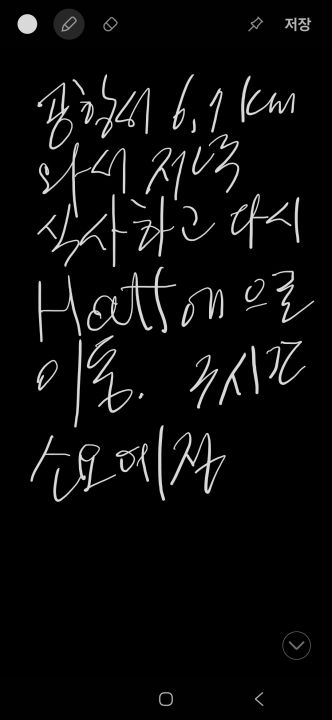 저장
공항서 6.1km
와서 저녁
식사하고 다시
Hatt 에으로
이동. 2시간
소요예정